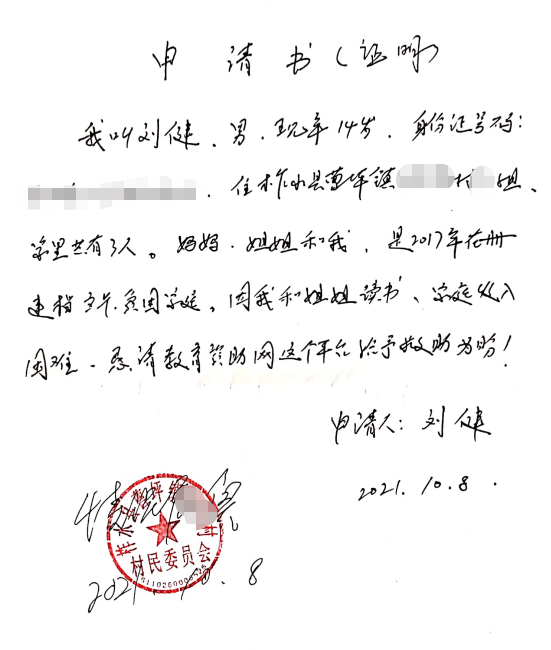 申请书（证明）
我叫刘健，男，现年14岁，身份证号码：
，住柞水县曹坪镇 村 组、
家里共有3人。妈妈、姐姐和我，是2017年在册
建档立卡贫困家庭，因我和姐姐读书、家庭收入
困难、恳请教育资助网这个平台给予救助为盼！
申请人：刘健
2021.10.8.
情况属实
柞水 坪镇 村
村民委员会
2021.10.8